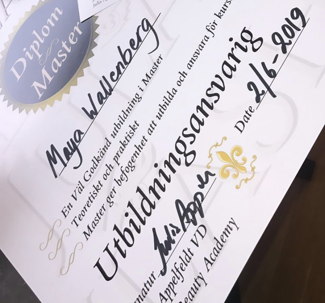 Diplom
Master
Maya Wallenberg
En Väl Godkänd utbildning i Master
Teoretiskt och praktiskt
Master ger befogenhet att utbilda och ansvara för kurs
Utbildningsansvarig
Date 2/6-2019
Appelfeldt VD
Beauty Academy